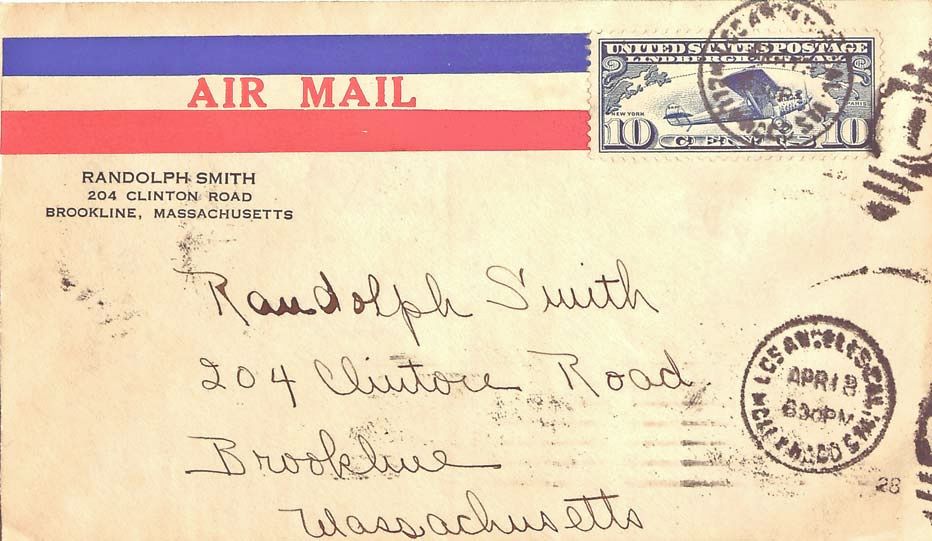 AIR MAIL
UNITED STATES POSTAGE
LINDBERGH AIR MAIL
NEW YORK
PARIS
10 CENTS 10
RANDOLPH SMITH
204 CLINTON ROAD
BROOKLINE, MASSACHUSETTS
Randolph Smith
204 Clinton Road
Brookline
Massachusetts
LOS ANGELES CAL
APR 18
630PM
28